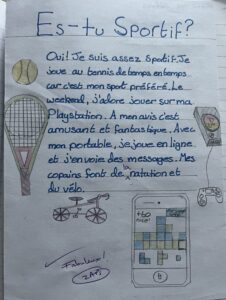 Es-tu Sportif?
Oui! Je suis assez sportif. Je
joue au tennis de temps en temps
car c'est mon sport préféré. Le
weekend, j'adore jouer sur ma
Playstation. A mon avis c'est
amusant et fantastique. Avec
mon portable, je joue en ligne
et j'envoie des messages. Mes
copains font de la natation et
du vélo.
Fabuleux!